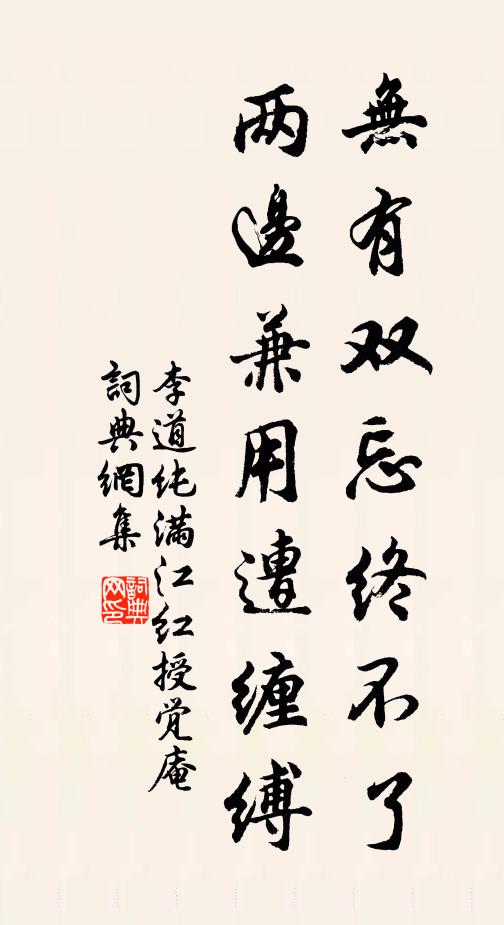 無有双忘终不了
两邊兼用遭缠缚
李道纯满江红授觉庵
詞典網集
詞典网印